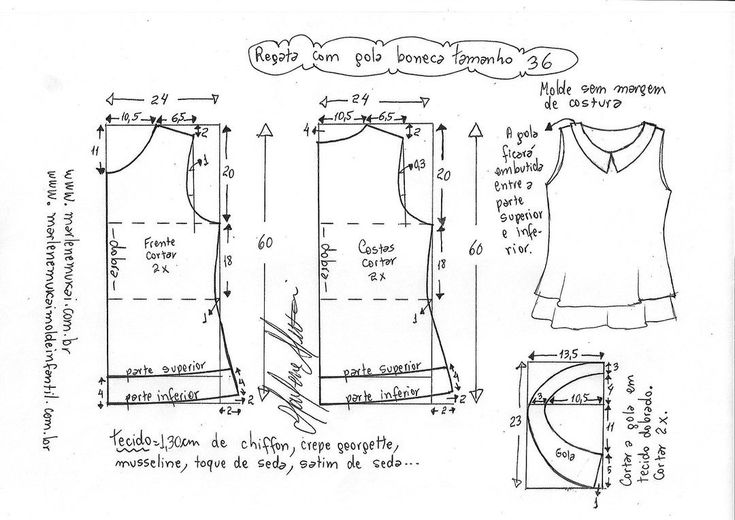 Regata com gola boneca tamanho 36
Molde sem margem
de costura
A gola
ficará
embutida
entre a
parte
superior
e infe-
rior.
24
10,5
6,5
2
11
1
20
60
dobra
Frente
cortar
2x
18
1
parte superior
parte inferior
4
4
2
2
24
10,5
6,5
4
2
0,3
20
60
dobra
Costas
cortar
2x
18
1
parte superior
parte inferior
4
2
2
13,5
3
4
3
10,5
23
11
Gola
5
1
Cortar a gola em
tecido dobrado.
Cortar 2x.
www.marlenemukai.com.br
www.marlenemukaimoldeinfantil.com.br
tecido=1,30cm de chiffon, crepe georgette,
musseline, toque de seda, satim de seda...